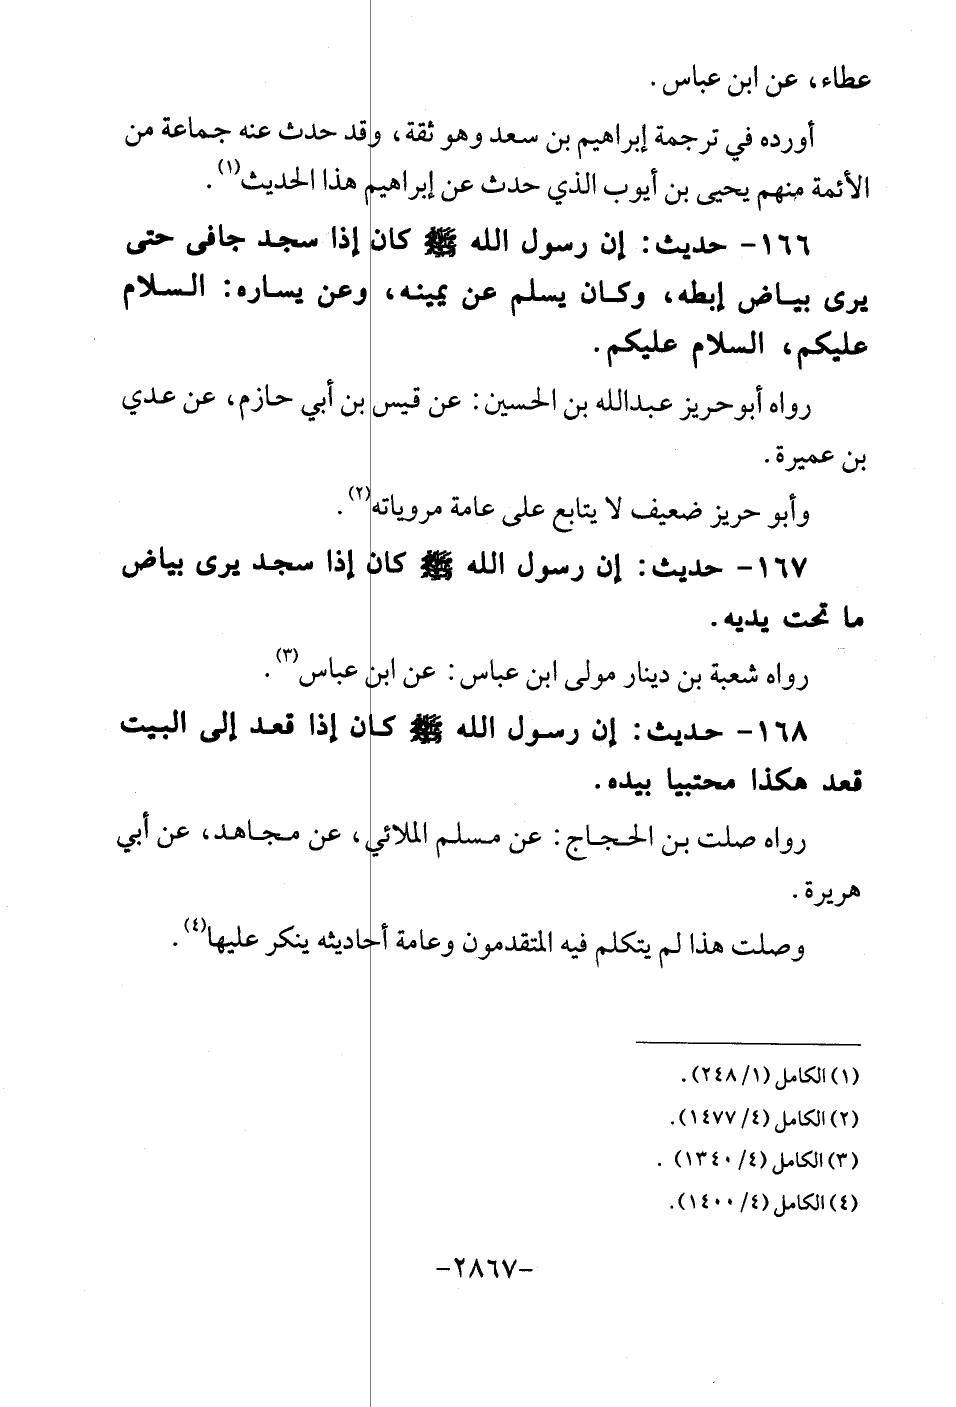 عطاء، عن ابن عباس.
أورده في ترجمة إبراهيم بن سعد وهو ثقة، وقد حدث عنه جماعة من
الأئمة منهم يحيى بن أيوب الذي حدث عن إبراهيم هذا الحديث(١).
١٦٦- حديث: إن رسول الله ﷺ كان إذا سجد جافى حتى
يرى بياض إبطه، وكان يسلم عن يمينه، وعن يساره: السلام
عليكم، السلام عليكم.
رواه أبوحريز عبدالله بن الحسين: عن قيس بن أبي حازم، عن عدي
بن عميرة.
وأبو حريز ضعيف لا يتابع على عامة مروياته(٢).
١٦٧- حديث: إن رسول الله ﷺ كان إذا سجد يرى بياض
ما تحت يديه.
رواه شعبة بن دينار مولى ابن عباس: عن ابن عباس(٣).
١٦٨- حديث: إن رسول الله ﷺ كان إذا قعد إلى البيت
قعد هكذا محتبيا بيده.
رواه صلت بن الحجاج: عن مسلم الملائي، عن مجاهد، عن أبي
هريرة.
وصلت هذا لم يتكلم فيه المتقدمون وعامة أحاديثه ينكر عليها(٤).
(١) الكامل (١/ ٢٤٨).
(٢) الكامل (٤/ ١٤٧٧).
(٣) الكامل (٤/ ١٣٤٠).
(٤) الكامل (٤/ ١٤٠٠).
-٢٨٦٧-